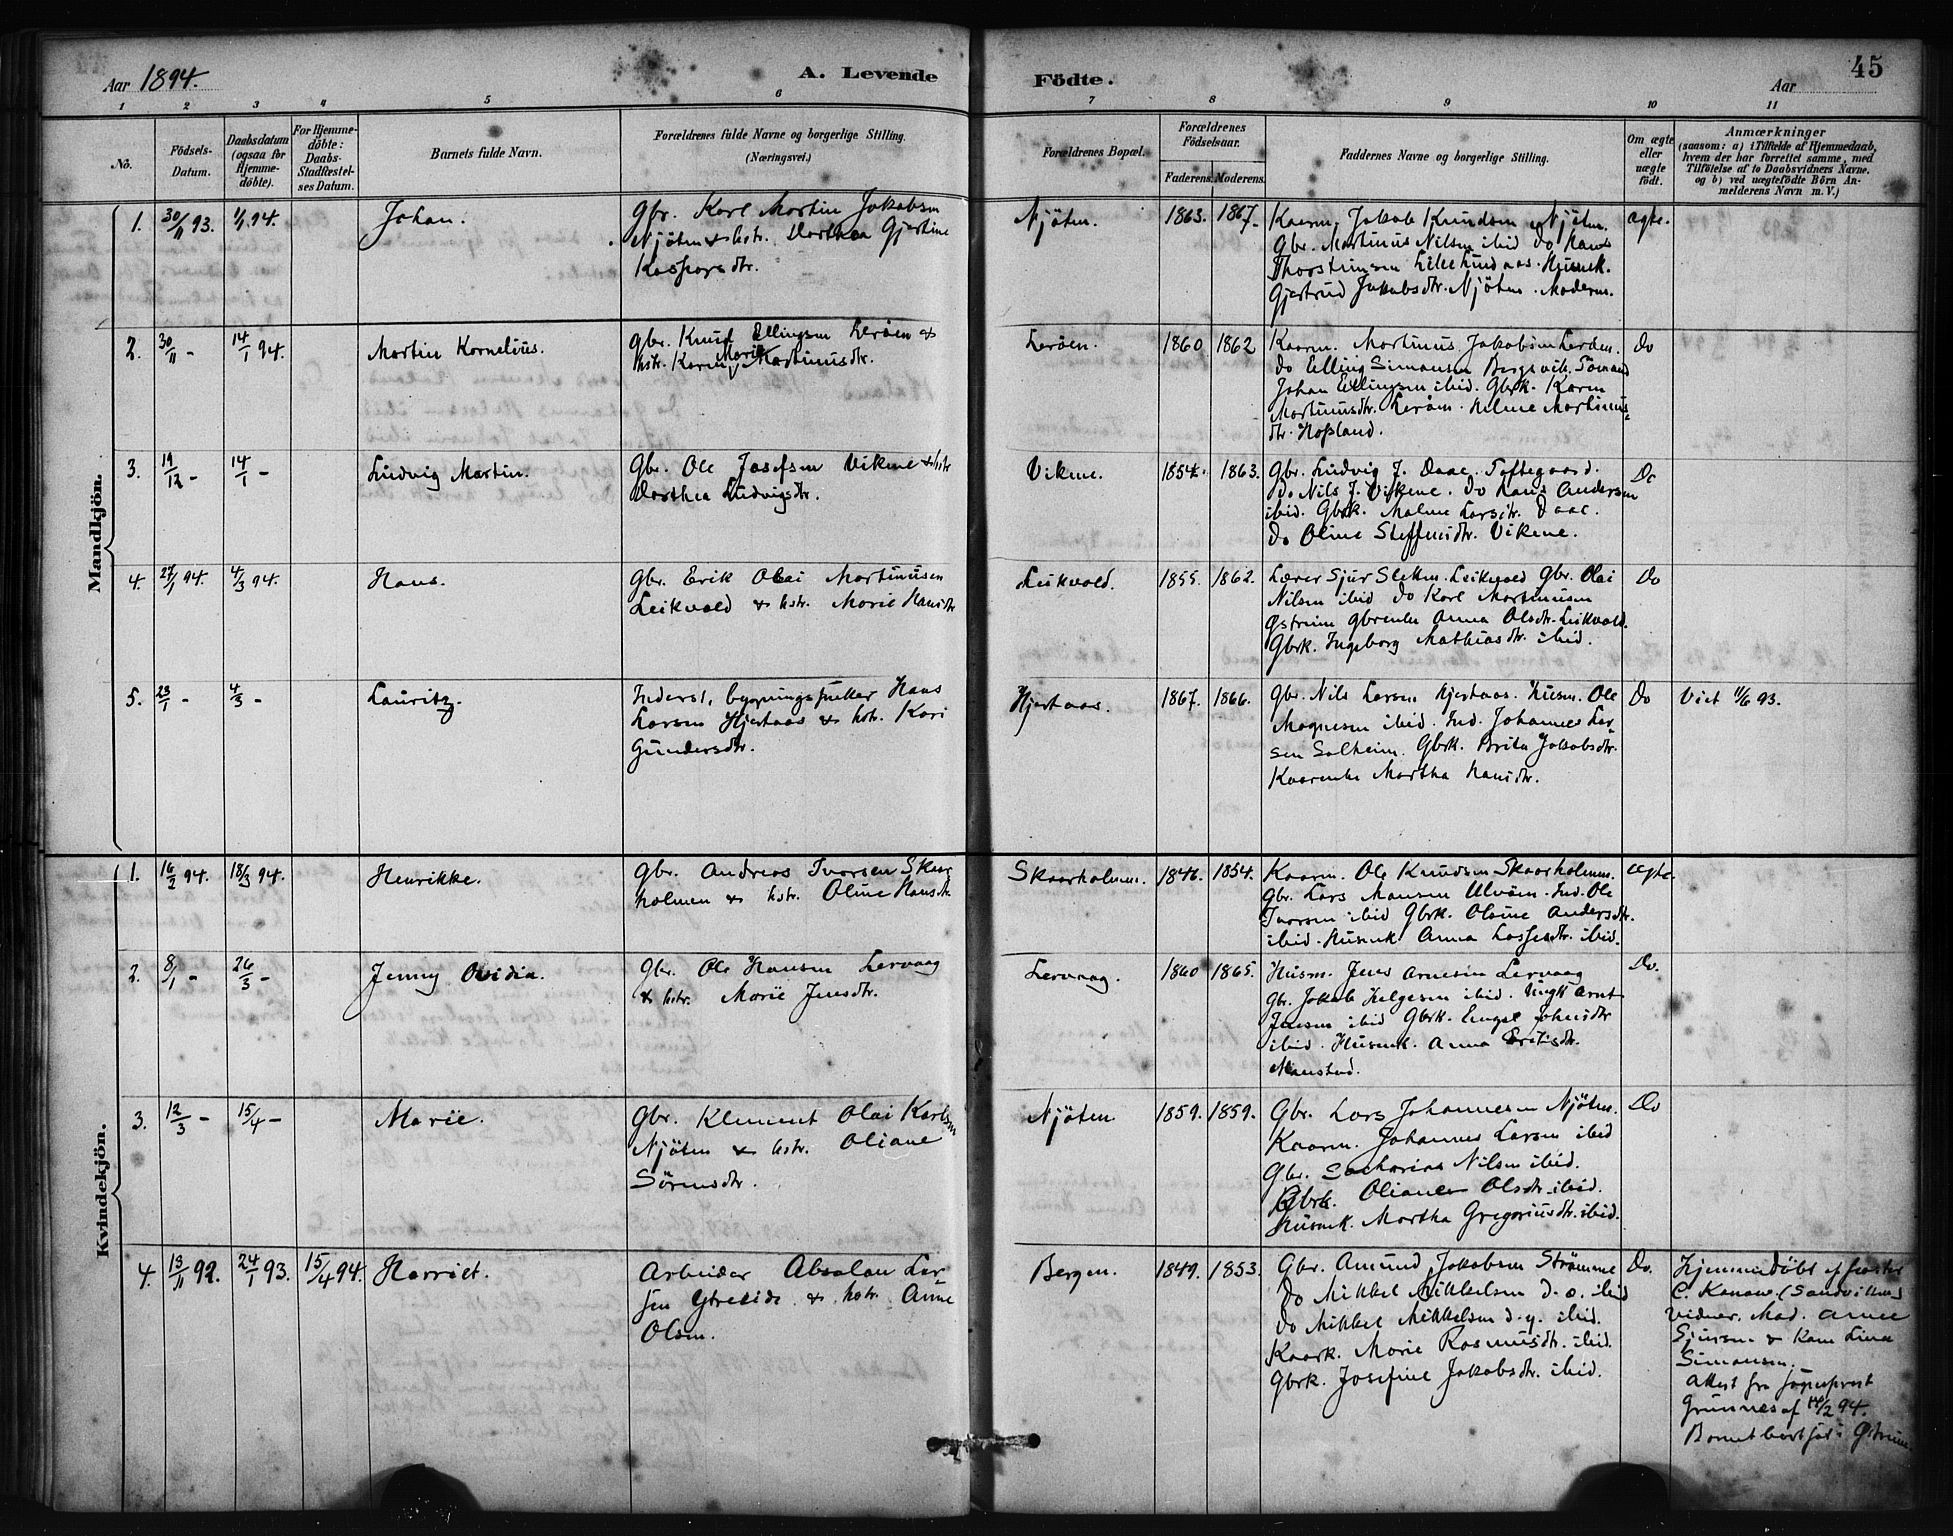 Aar 1894. A. Levende Födte. Aar 45
1 2 3 4 5 6 7 8 9 10 11
No. Födsels-Datum. Daabsdatum (ogsaa for Hjemmedöbte). For Hjemmedöbte: Daabs-Stadfæstelses Datum. Barnets fulde Navn. Forældrenes fulde Navne og borgerlige Stilling. (Næringsvei.) Forældrenes Bopæl. Forældrenes Födselsaar. Faderens. Moderens. Faddernes Navne og borgerlige Stilling. Om ægte eller uægte födt. Anmærkninger (saasom: a) i Tilfælde af Hjemmedaab, hvem der har forrettet samme, med Tilföielse af to Daabsvidners Navne, og b) ved uægtefödte Börn Anmelderens Navn m. V.)
Mandkjön.
1. 30/11 93. 1/1 94. Johan.
Gbr. Karl Martin Jakobsen
Njöten & hstr. Dorthea Gjertine
Kaspersdtr.
Njöten. 1863. 1867.
Kaarm. Jakob Knudsen Njöten.
Gbr. Martinus Nilsen ibid do Hans
Thorsteinsen Lille Lindaas. Husmk.
Gjertrud Jakobsdtr. Njöten. Moderen.
ægte.
2. 30/11 - 14/1 94. Martin Kornelius.
Gbr. Knud Ellingsen Leröen &
hstr. Karen Marie Martinusdtr.
Leröen. 1860 1862
Kaarm. Martinus Jakobsen Leröen.
do Elling Simonsen Bergsvik. Tömand
Johan Ellingsen ibid. Gbrk. Karen
Martinusdtr. Leröen. Helene Martinus-
dtr. Hopland.
Do
3. 19/12 - 14/1 - Ludvig Martin.
Gbr. Ole Josefsen Vikene & hstr
Dorthea Ludvigsdtr.
Vikene. 1854. 1863.
Gbr. Ludvig J. Daae. Toftegaard.
Do Nils J. Vikene. do Hans Andersen
ibid. Gbrk. Malene Larsdtr. Daae.
do Oline Steffensdtr. Vikene.
Do
4. 27/1 94. 4/3 94. Hans.
Gbr. Erik Olai Martinusen
Leikvold & hstr. Marie Hansdtr
Leikvold. 1855. 1862.
Lærer Sjur Sletten. Leikvold Gbr. Olai
Nilsen ibid do Karl Martinusen
Østreim Gbrenke Anna Olsdtr. Leikvold.
Gbrk. Ingeborg Mathiasdtr. ibid.
Do
5. 23/1 - 4/3 - Lauritz.
Inderst, bygningssnekker Hans
Larsen Hjertaas & hstr. Kari
Gundersdtr.
Hjertaas. 1867. 1866.
Gbr. Nils Larsen Hjertaas. Husm. Ole
Magnesen ibid. Ind. Johannes Lar-
sen Solheim. Gbrk. Brita Jakobsdtr.
Kaarenke Martha Hansdtr.
Do Viet 11/6 93.
Kvindekjön.
1. 16/2 94. 18/3 94. Henrikke.
Gbr. Andreas Ivarsen Skaar-
holmen & hstr. Oline Hansdtr
Skaarholmen. 1846. 1854.
Kaarm. Ole Knudsen Skaarholmen.
Gbr. Lars Monsen Ulvöen. Ind. Ole
Ivarsen ibid Gbrk. Oline Andersdtr.
ibid. Husmk Anna Lassesdtr. ibid.
ægte.
2. 8/1 - 26/3 - Jenny Ovidia.
Gbr. Ole Hansen Lervaag
& hstr. Marie Jensdtr.
Lervaag. 1860 1865.
Husm. Jens Arnesen Lervaag
Gbr. Jakob Helgesen ibid. Ungk Arnt
Jensen ibid Gbrk. Engel Johnsdtr
ibid. Husmk. Anna
Manstad.
Do.
3. 12/3 - 15/4 - Marie.
Gbr. Klement Olai Karlsen
Njöten & hstr. Oliane
Sörensdtr.
Njöten 1859. 1859.
Gbr. Lars Johannesen Njöten.
Kaarm. Johannes Larsen ibid
Gbr. Sacharias Nilsen ibid.
Gbrk. Oliane Olsdtr. ibid.
Husmk. Martha Gregoriusdtr. ibid.
Do
4. 13/11 92. 24/1 93. 15/4 94. Harriet.
Arbeider Absalon Lar-
sen Ytreeide & hstr. Anne
Olsen.
Bergen. 1849. 1853.
Gbr. Amund Jakobsen Strömme
Do Mikkel Mikkelsen d. æ. ibid
Do Mikkel Mikkelsen d. y. ibid.
Kaark. Marie Rasmusdtr. ibid.
Gbrk. Josefine Jakobsdtr. ibid.
Do.
Hjemmedöbt af
C. Kanaw. (Sandviken)
Vidner. Mad. Anne
Sjursen & Karn Lina
Simonsen.
Attest fra sogneprest
Grunnes af 14/2 94.